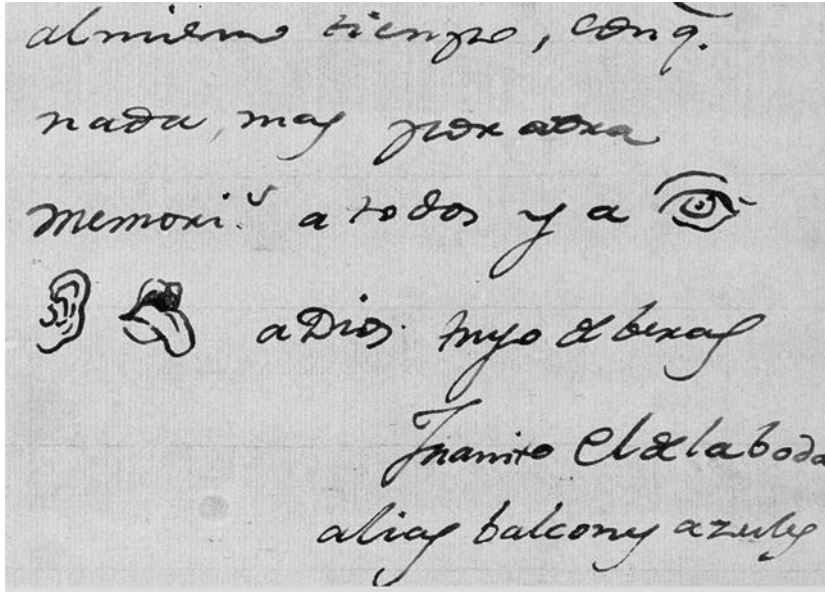 al mismo tiempo, conq.
nada mas por aora
memori.s a todos y a
aDios. tuyo de beras
Juanito El de la boda
alias balcones azules